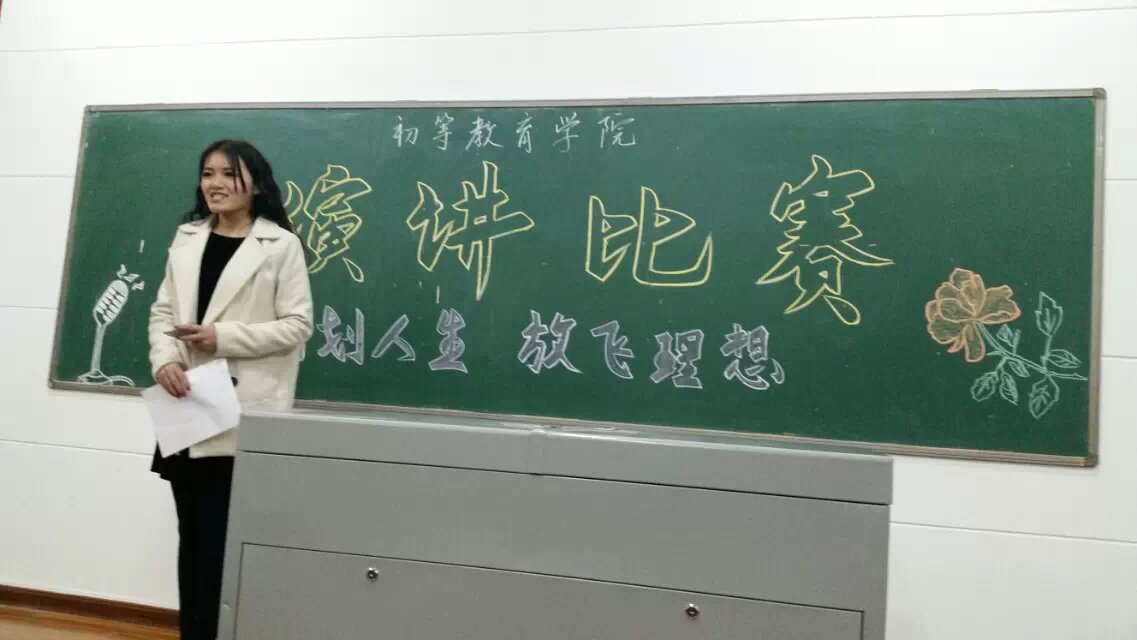 初等教育学院
演讲比赛
划人生 放飞理想